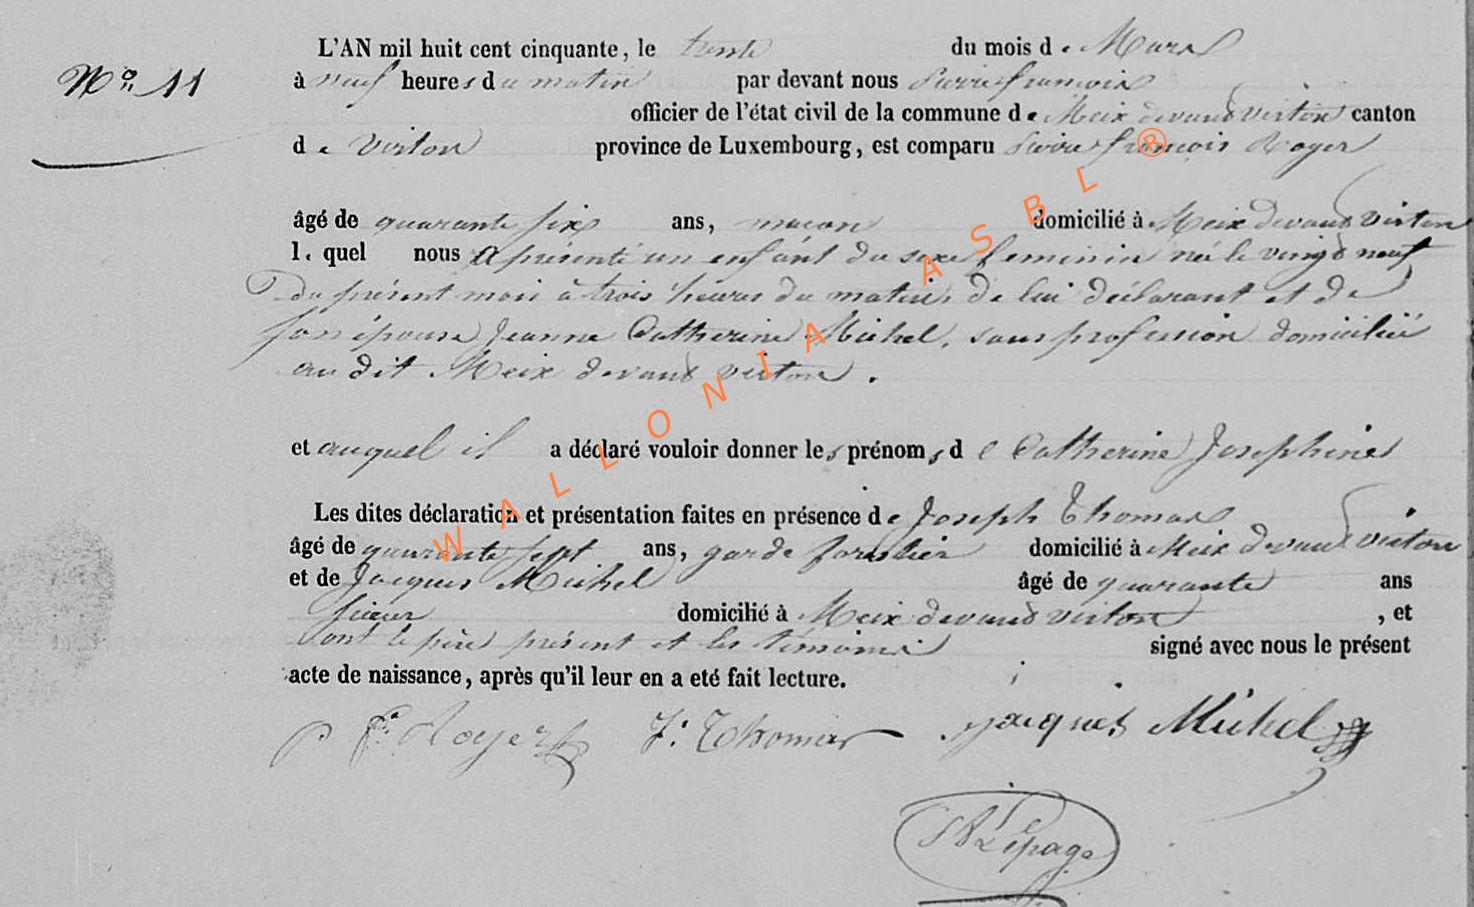 L'AN mil huit cent cinquante, le trente du mois de Mars
No. 11
à neuf heures du matin par devant nous Pierre françois
officier de l'état civil de la commune de Meix devant virton canton
de Virton province de Luxembourg, est comparu Pierre françois Royer
âgé de quarante six ans, macon domicilié à Meix devant virton
lequel nous a présenté un enfant du sexe feminin née le vingt neuf
du présent mois à trois heures du matin, de lui déclarant et de
son épouse Jeanne Catherine Michel, sans profession domiciliée
au dit Meix devant virton.
et auquel il a déclaré vouloir donner les prénoms de Catherine Josephine
Les dites déclaration et présentation faites en présence de Joseph Thomas
âgé de quarante sept ans, garde forestier domicilié à Meix devant virton
et de Jacques Michel âgé de quarante ans
domicilié à Meix devant virton, et
ont le père présent et les témoins signé avec nous le présent
acte de naissance, après qu'il leur en a eté fait lecture.
P fs Royer J. Thomas jacques Michel
Lepage
WALLONIA ASBL ®